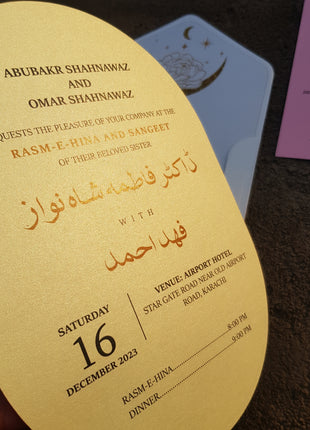 ABUBAKR SHAHNAWAZ
AND
OMAR SHAHNAWAZ
QUESTS THE PLEASURE OF YOUR COMPANY AT THE
RASM-E-HINA AND SANGEET
OF THEIR BELOVED SISTER
ڈاکٹر فاطمہ شاہ نواز
WITH
فہد احمد
SATURDAY
16
DECEMBER 2023
VENUE: AIRPORT HOTEL
STAR GATE ROAD NEAR OLD AIRPORT
ROAD, KARACHI
RASM-E-HINA.....................8:00 PM
DINNER..............................9:00 PM